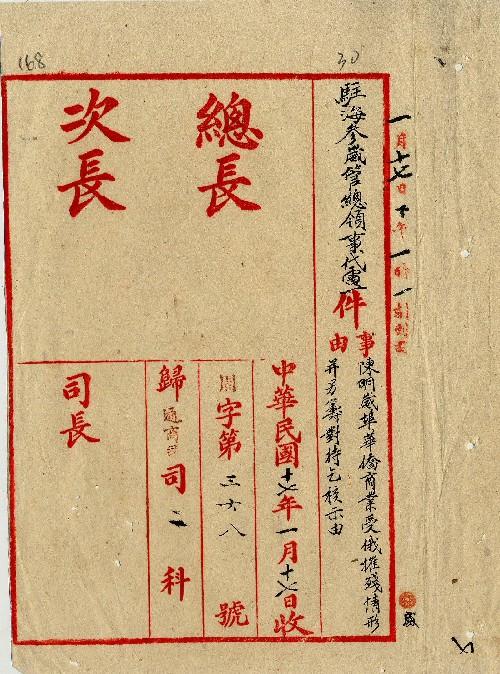 168
30
一月十七日下午一時
駐海參崴管總領事代電
件
事由
陳明崴埠華僑商業受俄摧殘情形
并另籌對待乞核示由
總長
次長
中華民國十七年一月十七日收
字第三六八號
歸通商司司二科
司長
崴